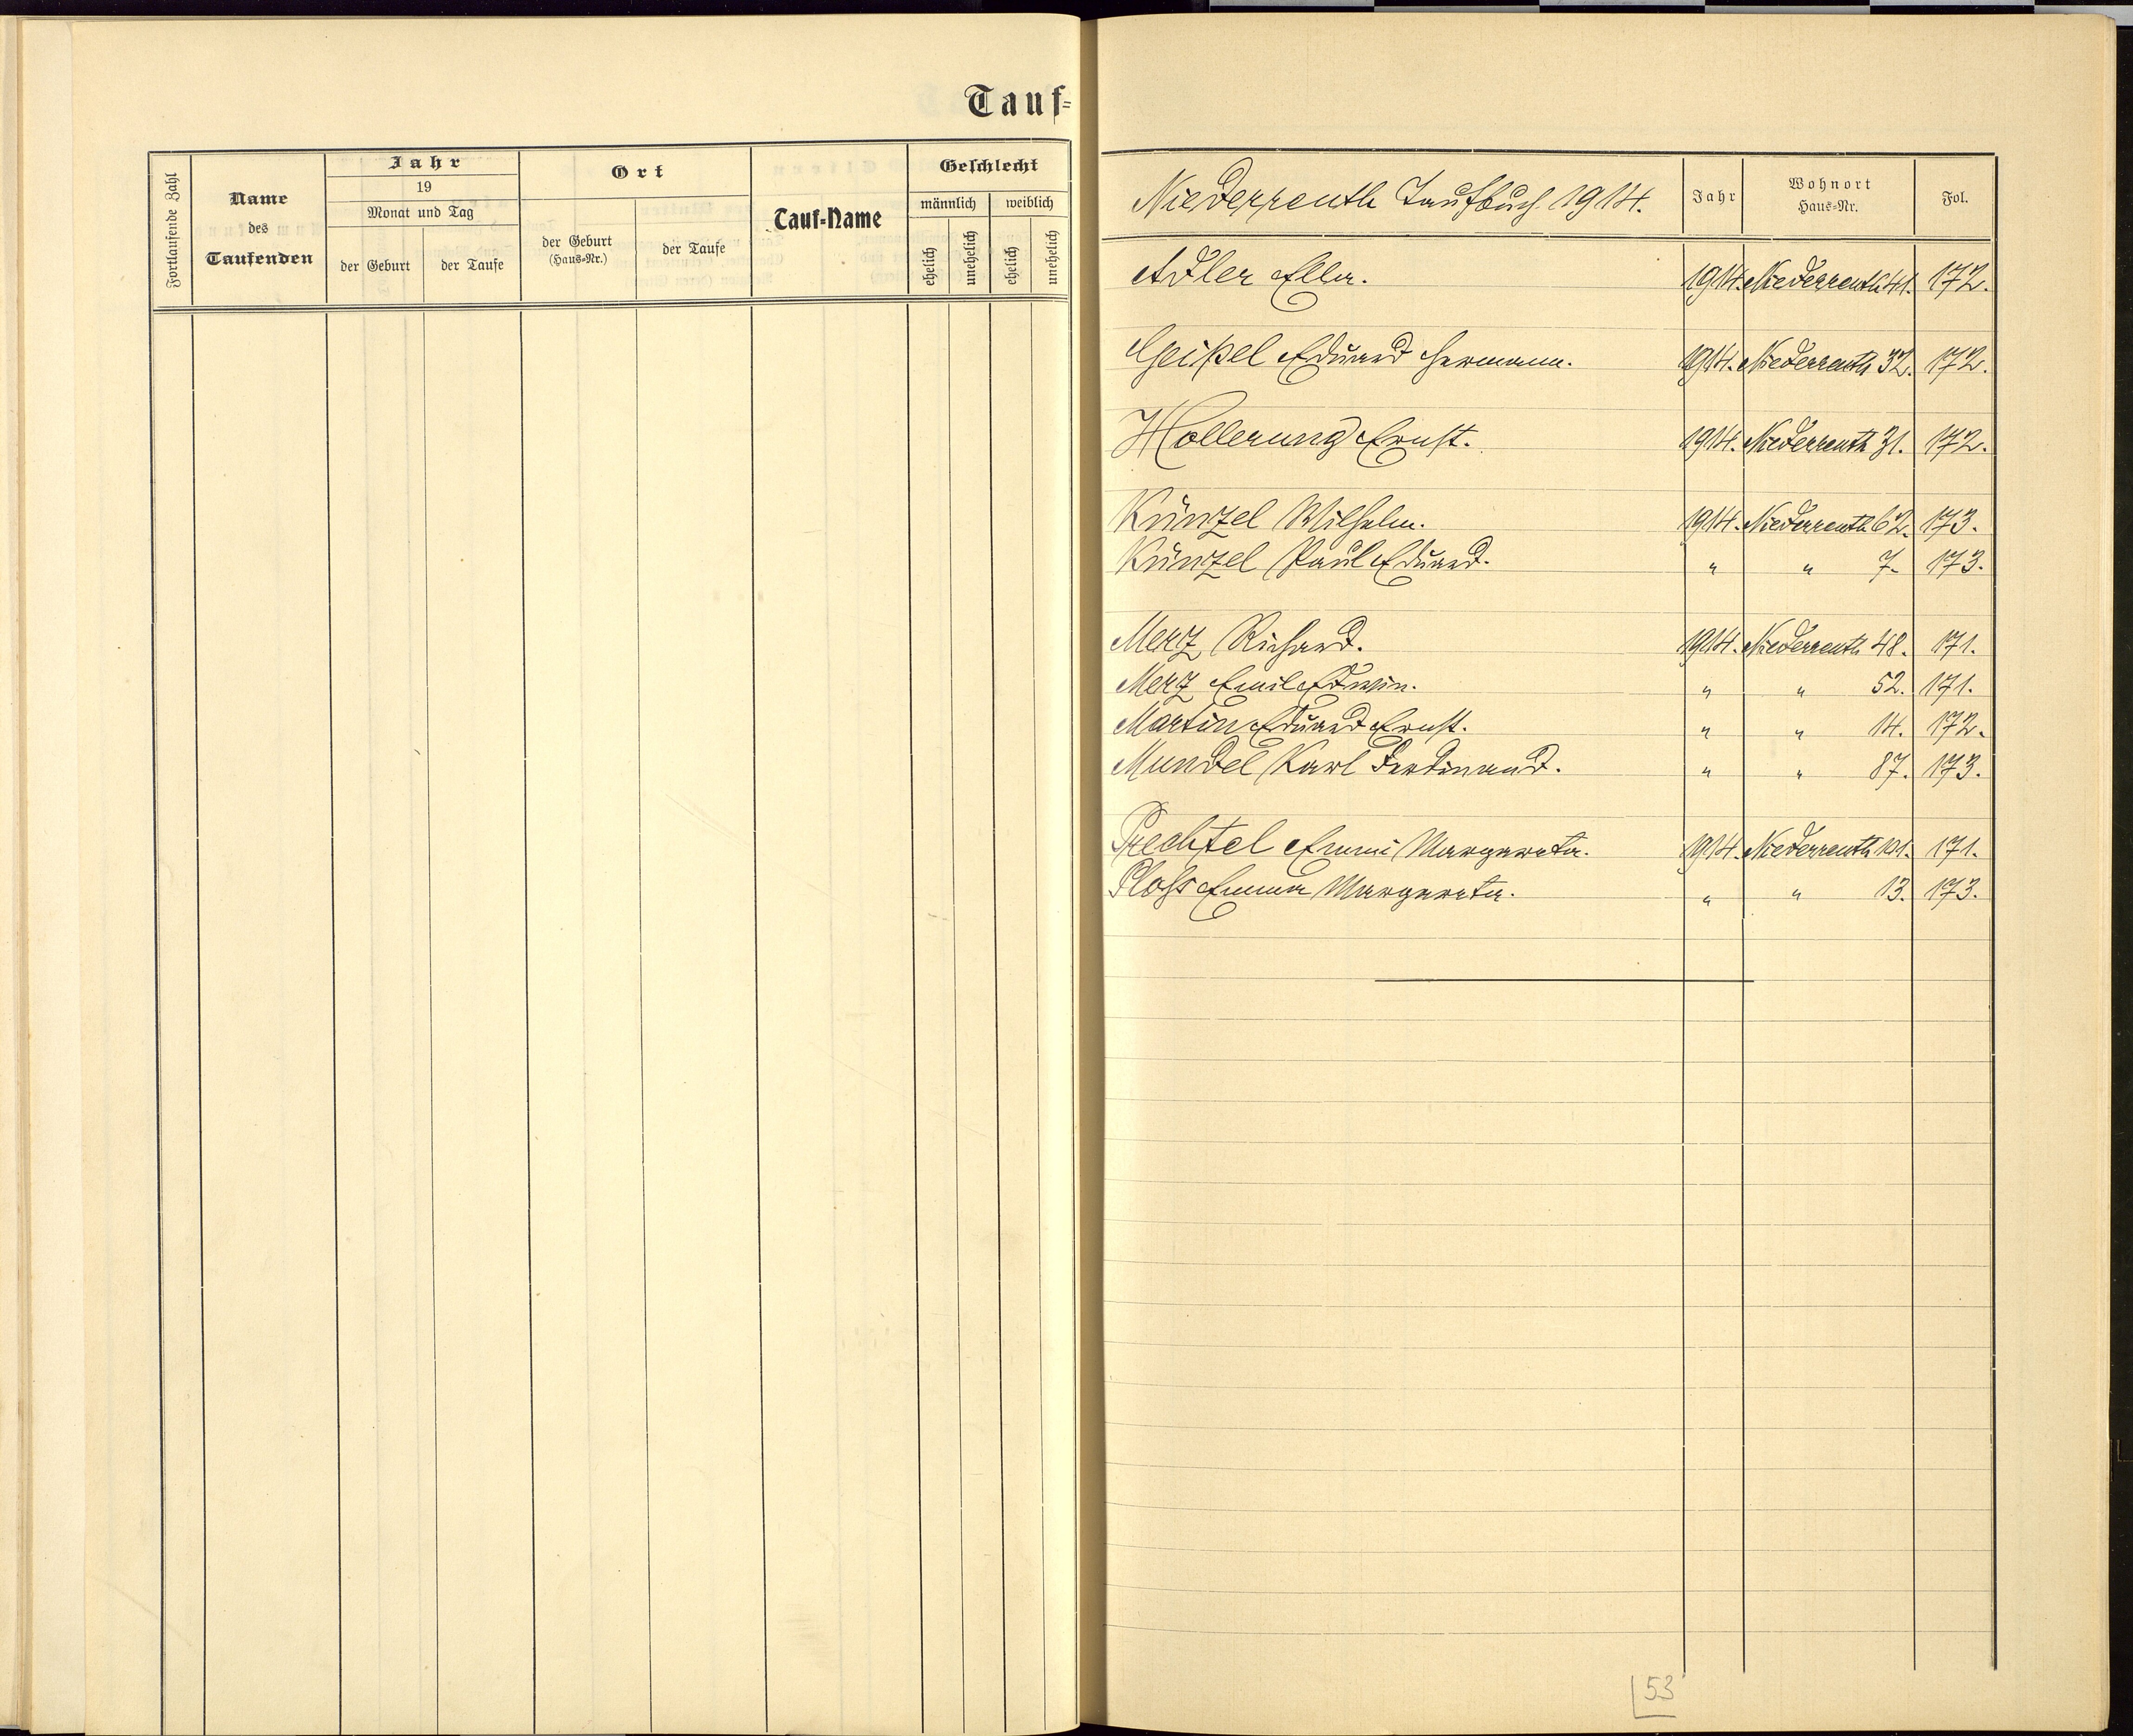 Tauf=
Fortlaufende Zahl
Name
des
Taufenden
Jahr
19
Monat und Tag
der Geburt
der Taufe
Ort
der Geburt
(Haus=Nr.)
der Taufe
Tauf=Name
Geschlecht
männlich
weiblich
ehelich
unehelich
ehelich
unehelich
Niederreuth Taufbuch 1914. Jahr Wohnort Haus=Nr. Fol.
Adler Ella. 1914. Niederreuth 41. 172.
Geißel Eduard Hermann. 1914. Niederreuth 32. 172.
Hollerung Ernst. 1914. Niederreuth 31. 172.
Künzel Wilhelm. 1914. Niederreuth 62. 173.
Künzel Paul Eduard. " " 7. 173.
Merz Richard. 1914. Niederreuth 48. 171.
Merz Emil Edwin. " " 52. 171.
Martin Eduard Ernst. " " 14. 172.
Mundel Karl Ferdinand. " " 87. 173.
Prechtel Emmi Margareta. 1914. Niederreuth 101. 171.
Ploss Emma Margareta. " " 13. 173.
53